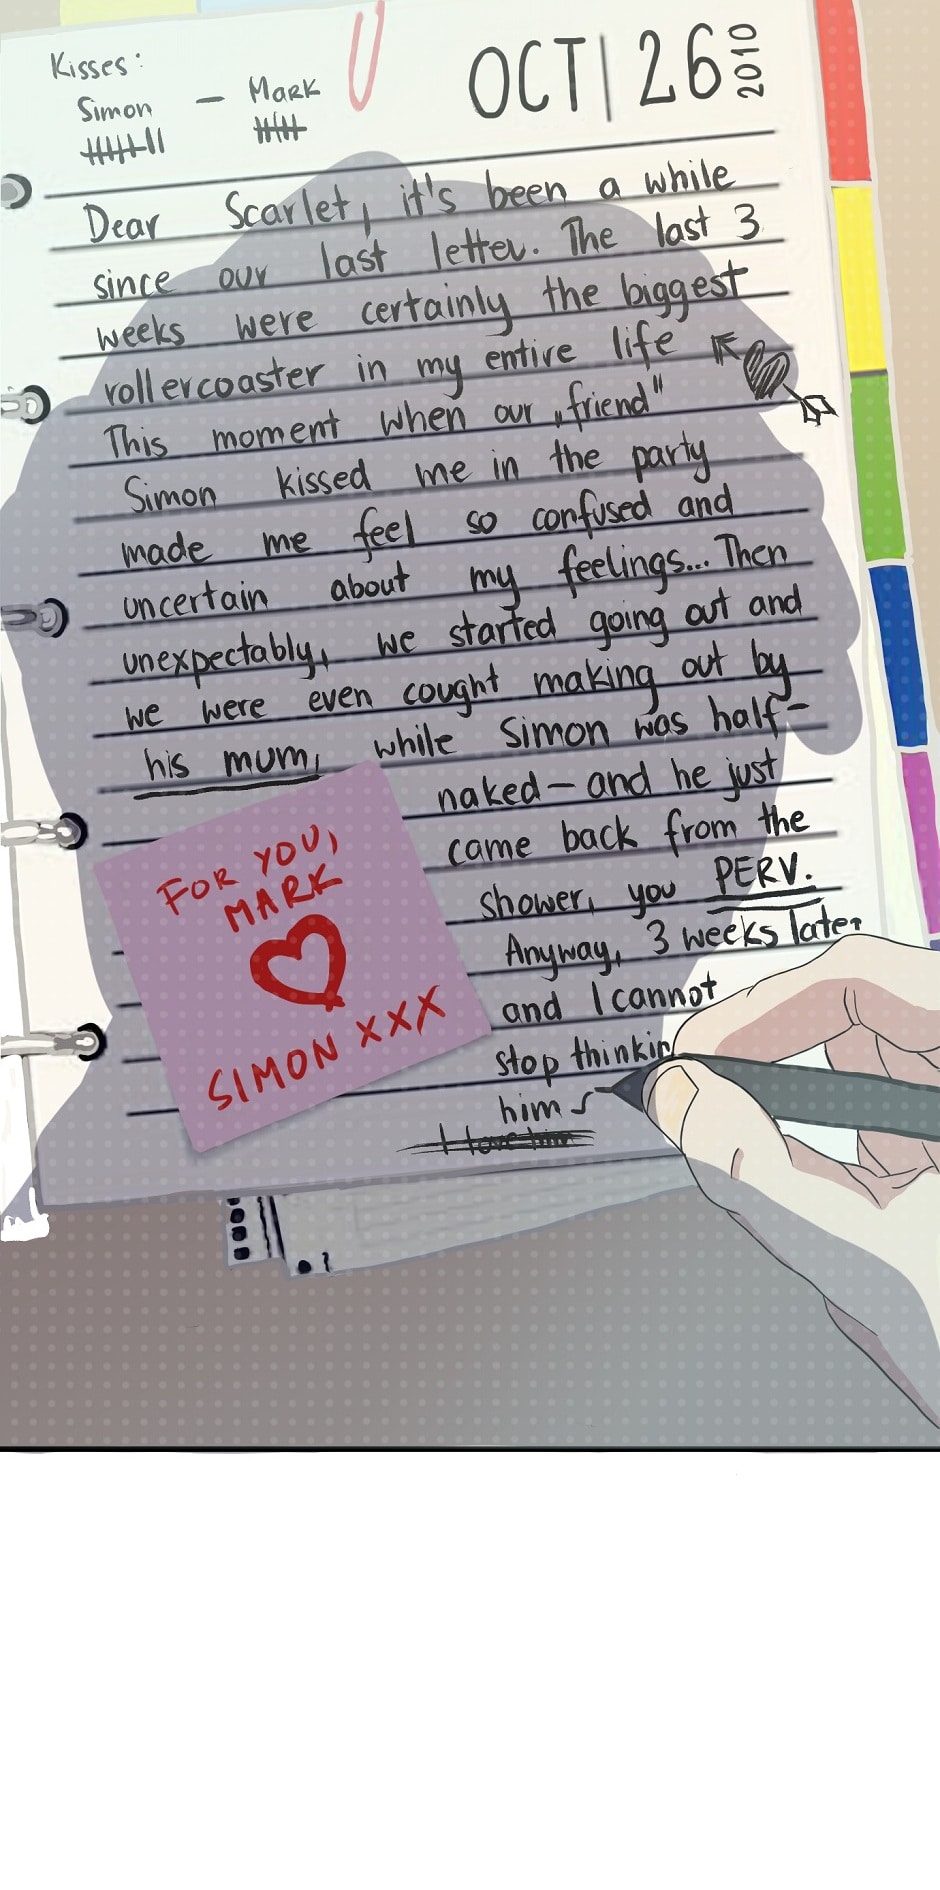 Kisses:
Simon - Mark
OCT | 26 2010
Dear Scarlet, it's been a while
since our last letter. The last 3
weeks were certainly the biggest
rollercoaster in my entire life
This moment when our „friend"
Simon kissed me in the party
made me feel so confused and
uncertain about my feelings... Then
unexpectably, we started going out and
we were even cought making out by
his mum, while Simon was half-
naked - and he just
came back from the
shower, you PERV.
Anyway, 3 weeks later
and I cannot
stop thinkin
him
I love him
FOR YOU,
MARK
SIMON XXX